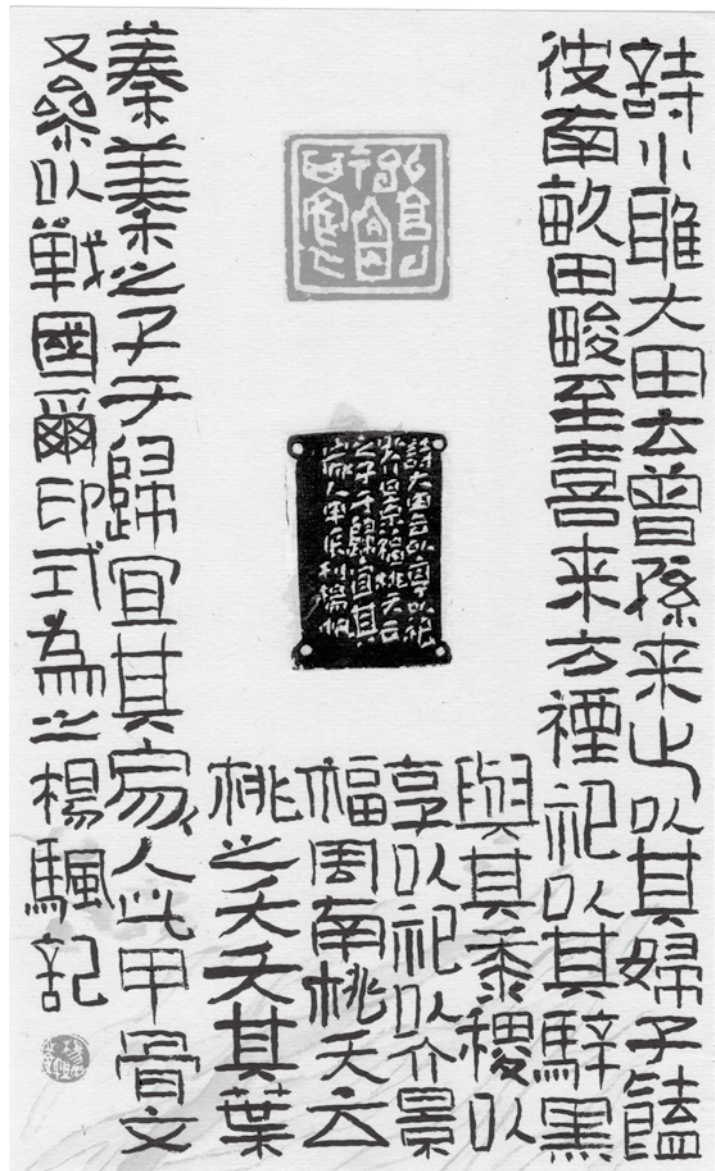 詩小雅大田云曾孫来止以其婦子饁
彼南畝田畯至喜来方禋祀以其騂黑
與其黍稷以
享以祀以介景
福周南桃夭云
桃之夭夭其葉
蓁蓁之子于歸宜其家人此甲骨文
又叅以戰國爾印式為之楊颿記
詩大田云以享以祀
以介景福桃夭云
之子于歸宜其
家人